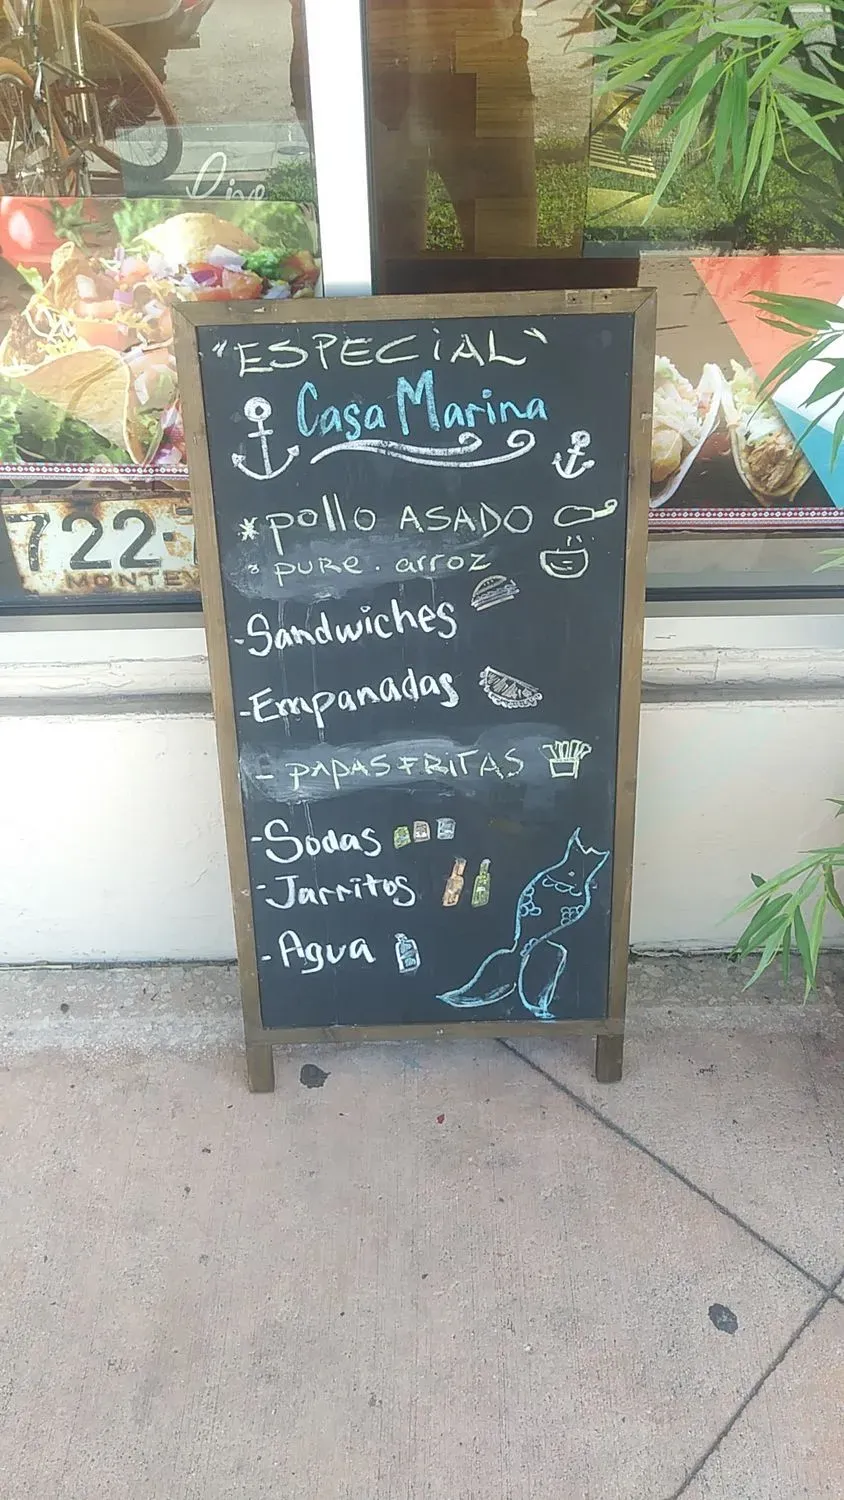 Live
"ESPECiAL"
Casa Marina
*pollo ASADO
° puRe. arroz
-Sandwiches
-Empanadas
- PAPAS FRiTAS
-Sodas
-Jarritos
-Agua
722-
MONTEV